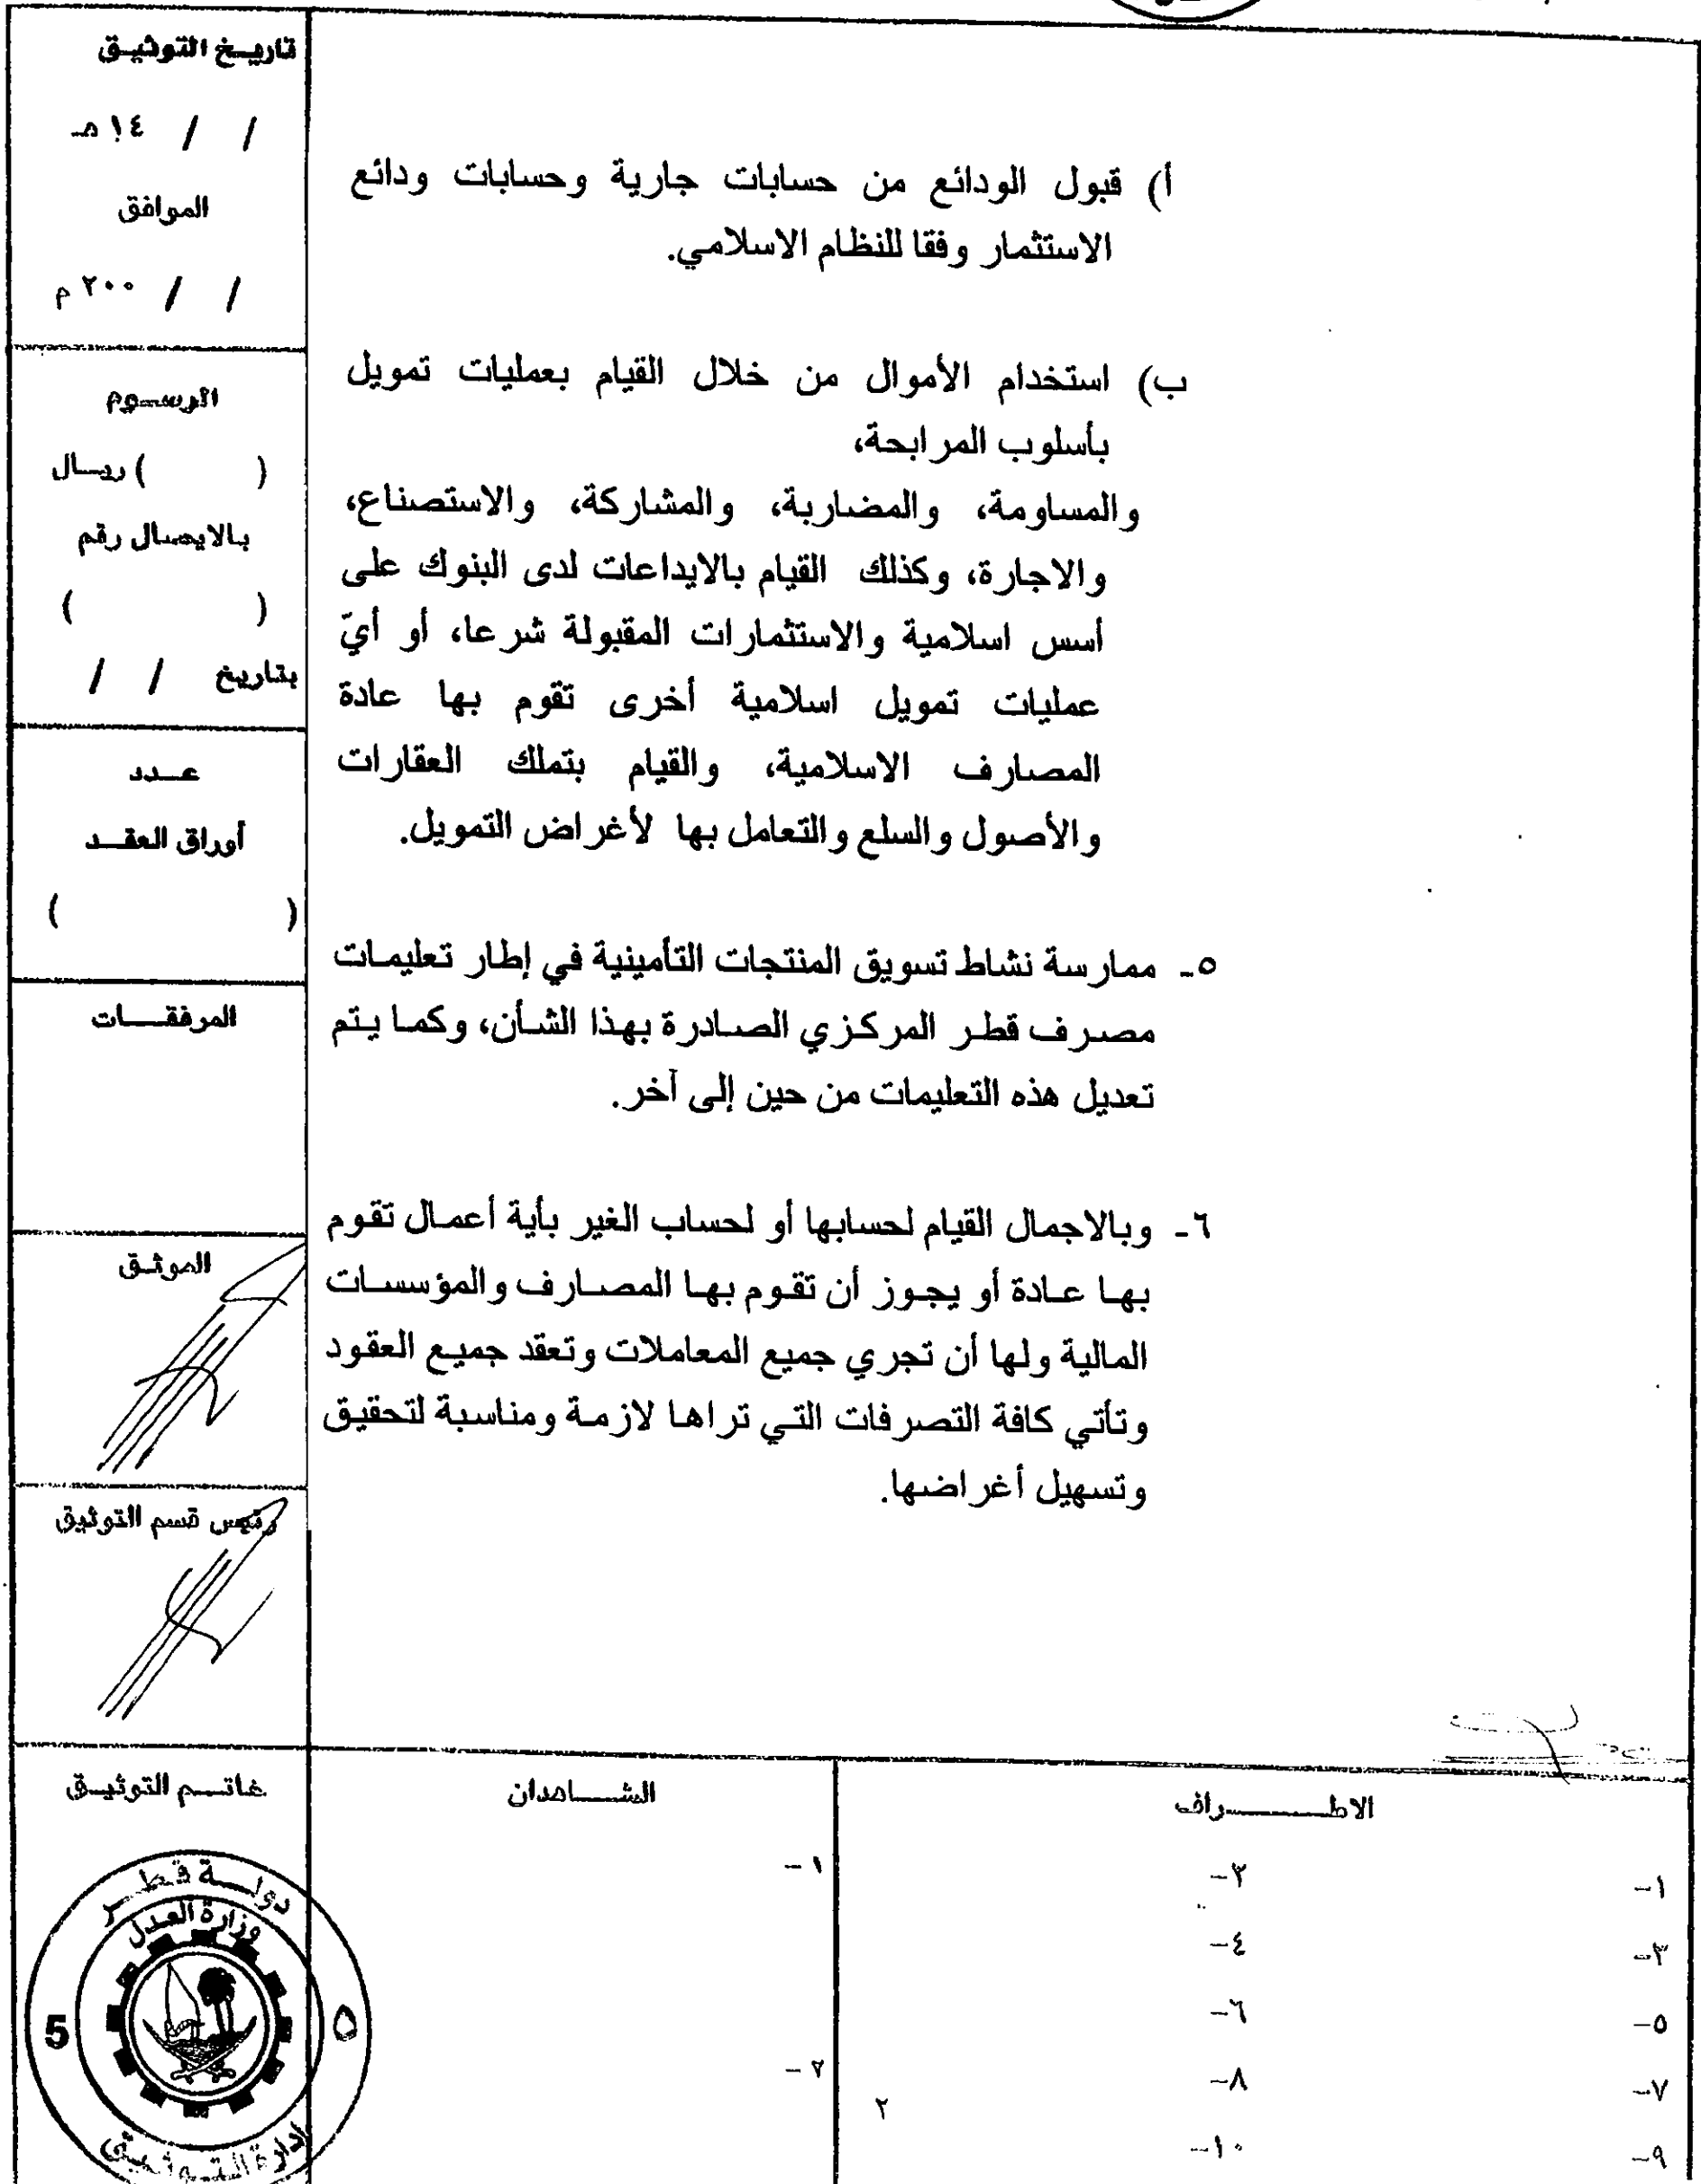 أ) قبول الودائع من حسابات جارية وحسابات ودائع
الاستثمار وفقا للنظام الاسلامي.
ب) استخدام الأموال من خلال القيام بعمليات تمويل
بأسلوب المرابحة،
والمساومة، والمضاربة، والمشاركة، والاستصناع،
والاجارة، وكذلك القيام بالايداعات لدى البنوك على
أسس اسلامية والاستثمارات المقبولة شرعا، أو أيّ
عمليات تمويل اسلامية أخرى تقوم بها عادة
المصارف الاسلامية، والقيام بتملك العقارات
والأصول والسلع والتعامل بها لأغراض التمويل.
٥- ممارسة نشاط تسويق المنتجات التأمينية في إطار تعليمات
مصرف قطر المركزي الصادرة بهذا الشأن، وكما يتم
تعديل هذه التعليمات من حين إلى آخر.
٦- وبالاجمال القيام لحسابها أو لحساب الغير بأية أعمال تقوم
بها عادة أو يجوز أن تقوم بها المصارف والمؤسسات
المالية ولها أن تجري جميع المعاملات وتعقد جميع العقود
وتأتي كافة التصرفات التي تراها لازمة ومناسبة لتحقيق
وتسهيل أغراضها.
تاريخ التوثيق
/ / ١٤ هـ
الموافق
/ / ٢٠٠ م
الرسوم
( ) ريال
بالايصال رقم
( )
بتاريخ / /
عدد
أوراق العقد
( )
المرفقات
الموثق
رئيس قسم التوثيق
الاطراف
١- ٢-
٣- ٤-
٥- ٦-
٧- ٨-
٩- ١٠-
الشاهدان
١-
٢-
٢
خاتم التوثيق
دولة قطر
وزارة العدل
5 ٥
إدارة التوثيق